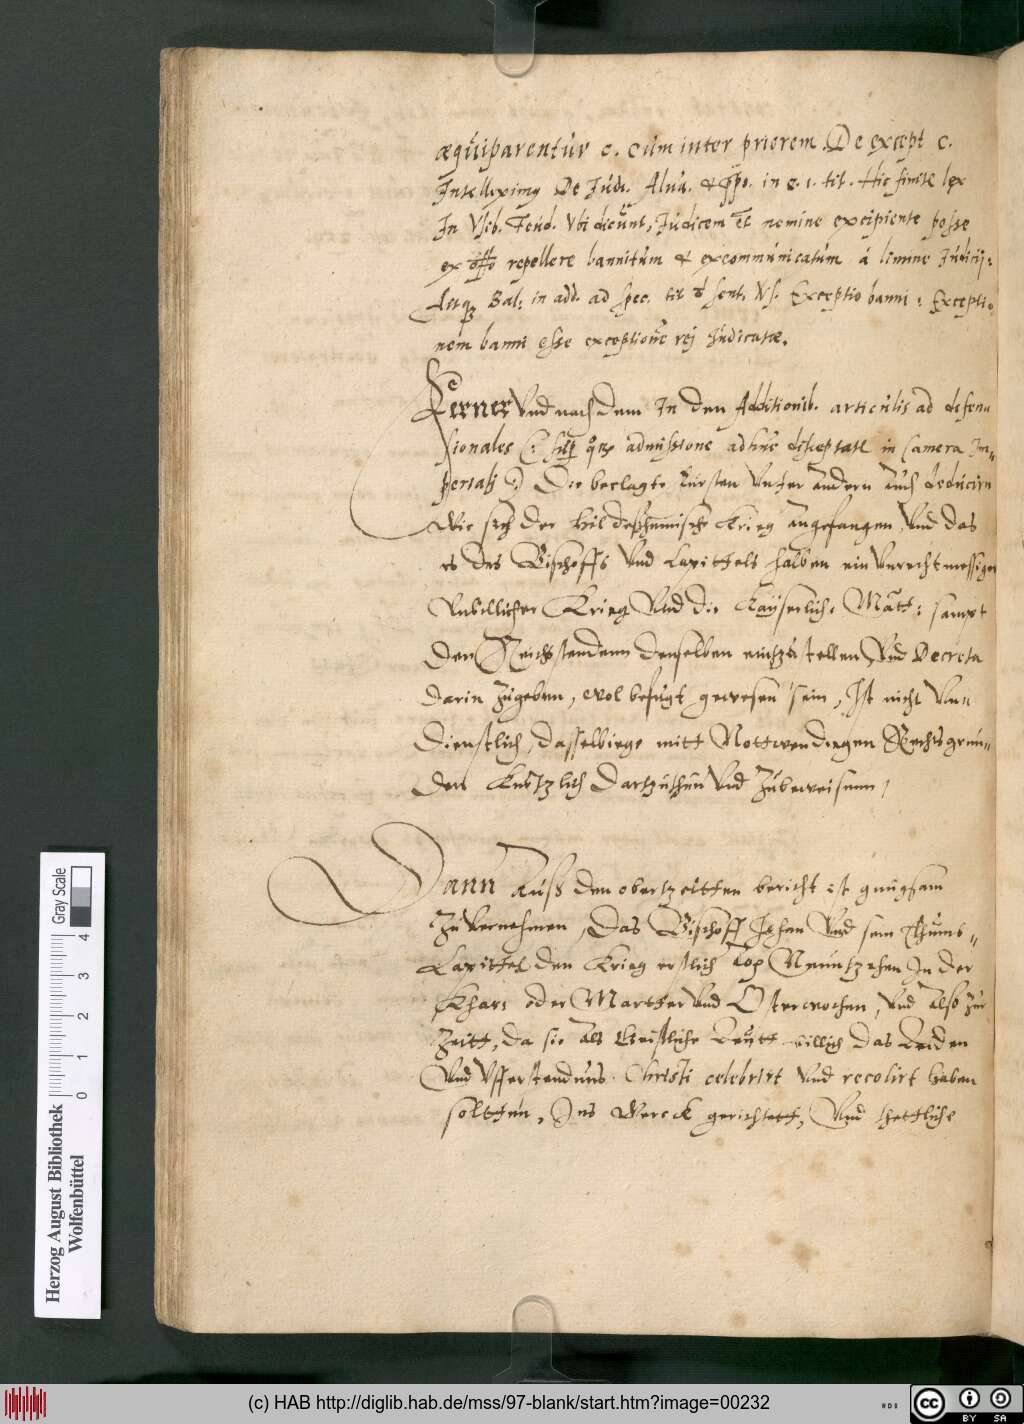 æquiparentur c. cum inter priorem. De except c.
Intelleximus De Judi. Alna. & in c. 1. tit. Hic finitæ lex
In Usib. Feud. Ubi dicunt, Judicem et nemine excipiente posse
ex offo repellere bannitum & excommunicatum á limine Judicij:
Atque Bal: in add. ad spec. tit d sent. Vs. Exceptio banni: Exceptio
nem banni esse exceptione rej Judicatæ.
Ferner Vnd nach dem In den Additionib. articulis ad defen
sionales (: admissione adhuc disceptatr in Camera Im=
periali :) Die beclagte Fürsten Vnter andern Auch deducirn
Wie sich der Hildeßheimische Krieg angefangen, Vnd das
es des Bischoffs Vnd Capittels halben ein Vnrechtmessiger
Vnbillicher Krieg Vnd die Kayserliche Matt: sampt
den Reichsstendenn denselben einzustellen, Vnd Decreta
darin zugeben, wol befugt gewesen sein, Ist nicht Vn=
dienstlich, dasselbige mitt Nottwendigen Rechtsgrün=
den Kürtzlich Dartzuthun Vnd Zubeweisenn,
Dann Auß den obertzeltten bericht ist gnugsam
Zu Vernehmen, Das Bischoff Johan Vnd sein Thumb=
Capittel den Krieg erstlich Neuntzehen In der
Khar oder Martter Vnd Osterwochen, Vnd Also Zur
Zeitt, da sie Als Geistliche Leutt billich das Leiden
Vnd Vfferstendnus Christi celebrirt Vnd recolirt haben
soltten, Ins Werck gerichtett, Vnd thettliche
Herzog August Bibliothek
Wolfenbüttel
0 1 2 3 4
Gray Scale
(c) HAB http://diglib.hab.de/mss/97-blank/start.htm?image=00232
cc BY SA